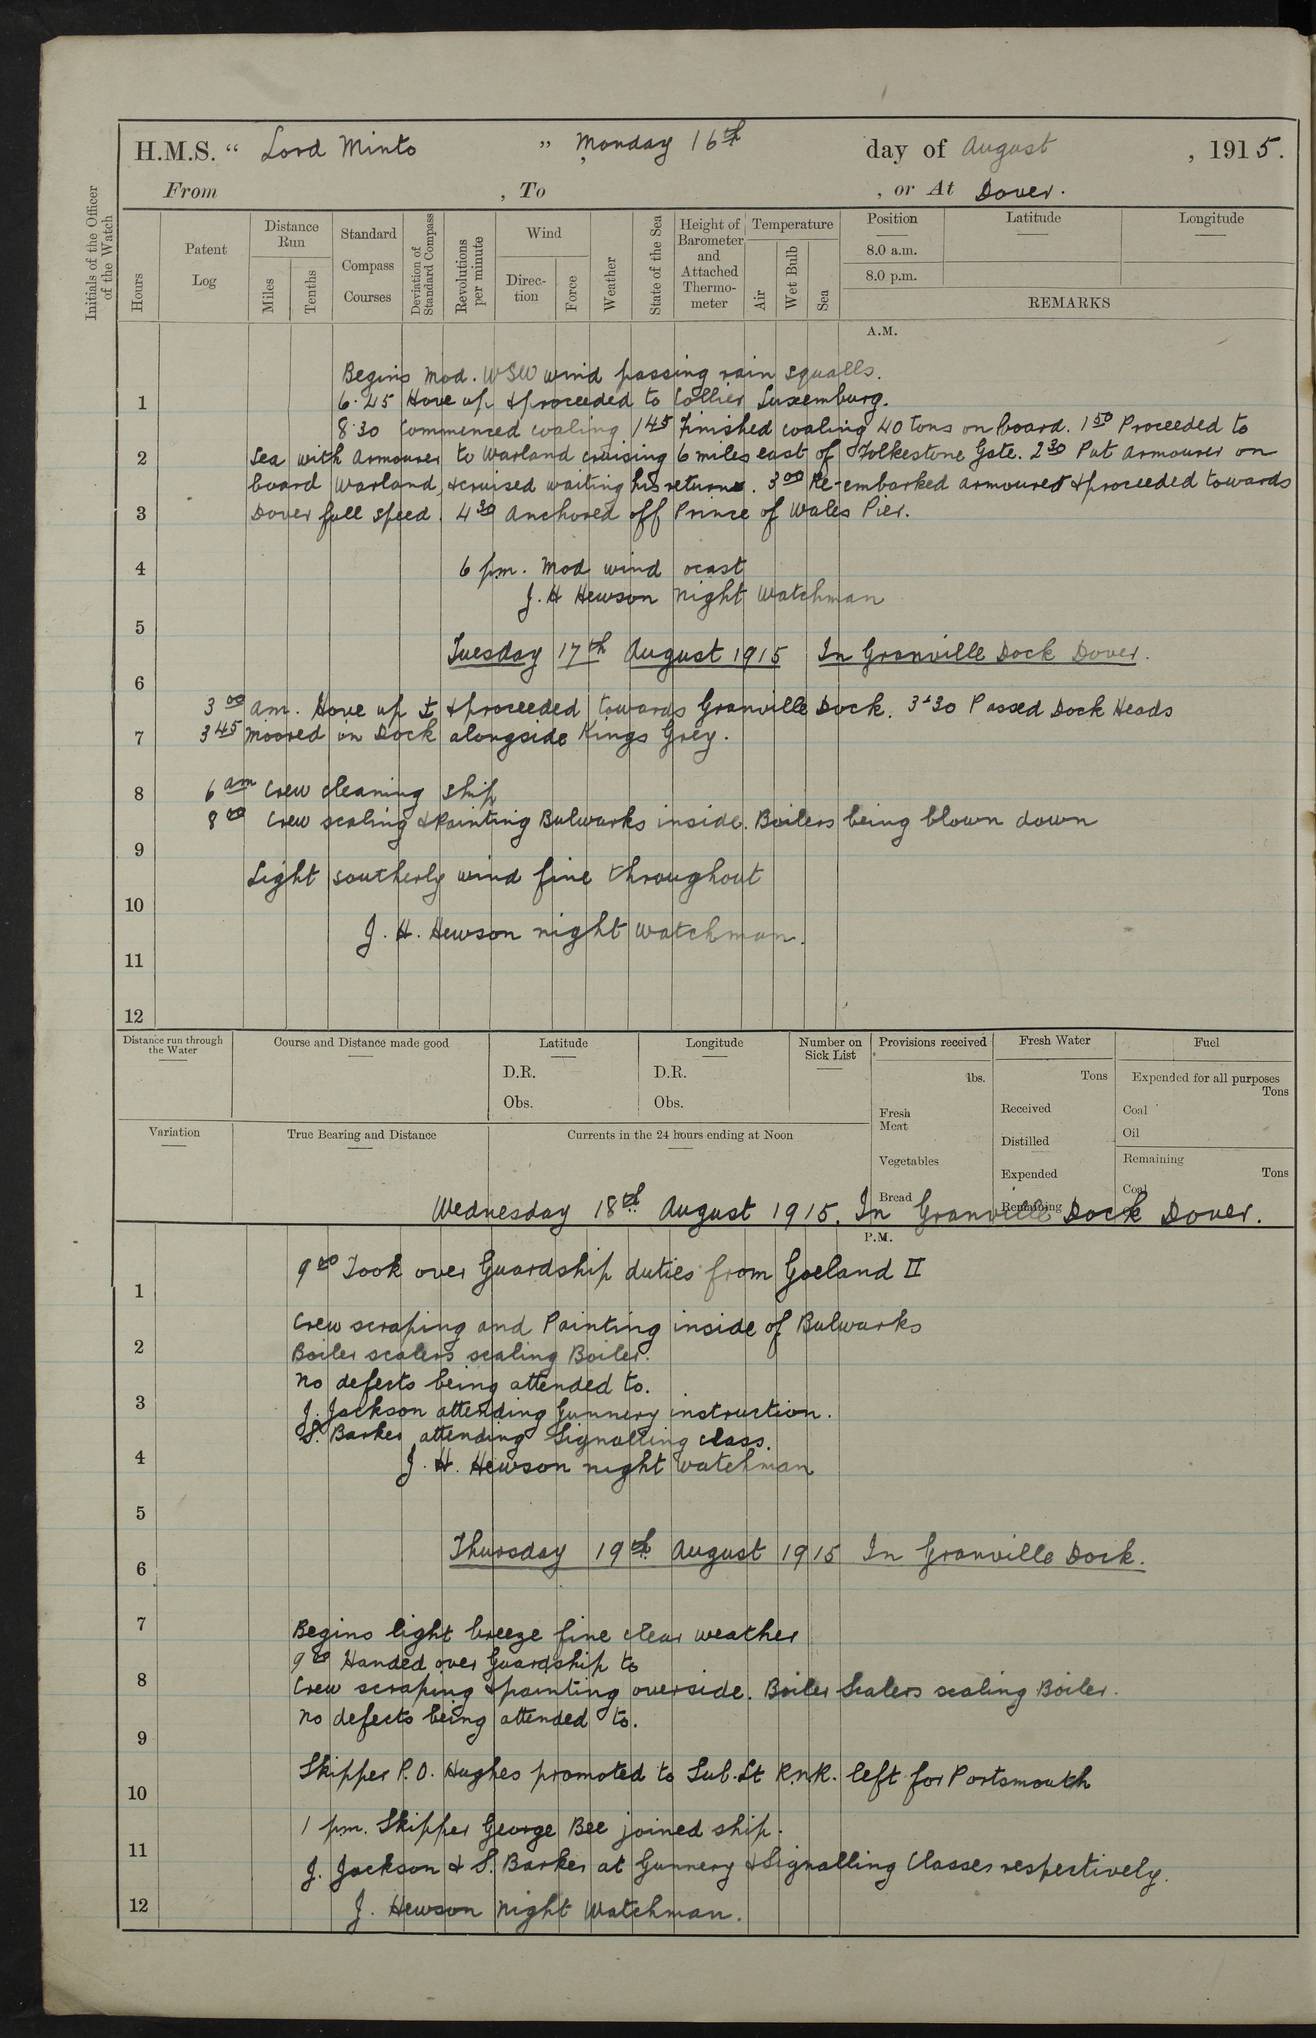 H.M.S. “ Lord Minto ” Monday 16th day of August , 1915.
From , To , or At Dover.
Initials of the Officer of the Watch
Hours
Patent Log
Distance Run
Miles
Tenths
Standard Compass Courses
Deviation of Standard Compass
Revolutions per minute
Wind
Direction
Force
Weather
State of the Sea
Height of Barometer and Attached Thermometer
Temperature
Air
Wet Bulb
Sea
Position
Latitude
Longitude
8.0 a.m.
8.0 p.m.
REMARKS
A.M.
Begins mod. WSW wind passing rain squalls.
1
6.45 Hove up & proceeded to Collier Luxemburg.
8.30 Commenced coaling 1 45 Finished coaling 40 tons on board. 1 50 Proceeded to
2
Sea with armourer to Warland cruising 6 miles east of Folkestone Gate. 2 30 Put armourer on
board Warland, & cruised waiting his return. 3 00 Re-embarked armourer & proceeded towards
3
Dover full speed. 4 30 anchored off Prince of Wales Pier.
4
6 p.m. mod wind ocast
J. H Hewson night watchman
5
Tuesday 17th August 1915 In Granville Dock Dover.
6
3 00 am. Hove up & proceeded towards Granville Dock. 3.30 Passed Dock Heads
7
3 45 moored in Dock alongside Kings Grey.
8
6 am Crew cleaning ship
8 00 Crew scaling & Painting Bulwarks inside. Boilers being blown down
9
Light southerly wind fine throughout
10
J. H. Hewson night watchman.
11
12
Distance run through the Water
Course and Distance made good
Latitude
D.R.
Obs.
Longitude
D.R.
Obs.
Number on Sick List
Provisions received
lbs.
Fresh Meat
Vegetables
Bread
Fresh Water
Tons
Received
Distilled
Expended
Remaining
Fuel
Expended for all purposes
Tons
Coal
Oil
Remaining
Tons
Coal
Variation
True Bearing and Distance
Currents in the 24 hours ending at Noon
Wednesday 18th August 1915. In Granville Dock Dover.
P.M.
9 00 Took over Guardship duties from Goeland II
1
Crew scraping and Painting inside of Bulwarks
2
Boiler scalers scaling Boiler.
No defects being attended to.
3
J. Jackson attending Gunnery instruction.
S. Barker attending Signalling class.
4
J. H. Hewson night watchman
5
Thursday 19th August 1915 In Granville Dock.
6
7
Begins light breeze fine clear weather
9 00 Handed over Guardship to
8
Crew scraping & painting overside. Boiler Scalers scaling Boiler.
No defects being attended to.
9
Skipper P.O. Hughes promoted to Sub. Lt R.N.R. left for Portsmouth
10
1 p.m. Skipper George Bee joined ship.
11
J. Jackson & S. Barker at Gunnery & Signalling Classes respectively.
12
J. Hewson Night Watchman.